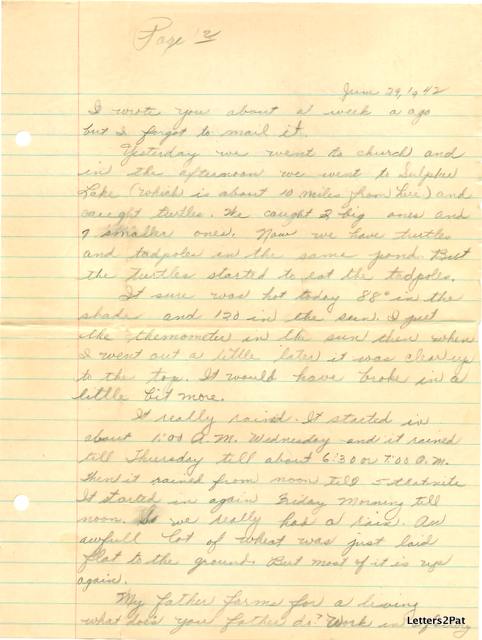 Page 2
June 29, 1942
I wrote you about a week a ago
but I forgot to mail it.
Yesterday we went to church and
in the afternoon we went to Sulphur
Lake (which is about 10 miles from here) and
caught turtles. We caught 2 big ones and
9 smaller ones. Now we have turtles
and tadpoles in the same pond. But
the turtles started to eat the tadpoles.
It sure was hot today 88° in the
shade and 120 in the sun. I put
the themometer in the sun then when
I went out a little later it was clear up
to the top. It would have broke in a
little bit more.
It really raind. It started in
about 1:00 A.M. Wednesday and it rained
till Thursday till about 6:30 or 7:00 A.M.
then it rained from noon till 5 that nite
It started in again Friday Morning till
noon. So we really had a rain. An
awfull lot of wheat was just laid
flat to the ground. But most of it is up
again.
My father farms for a living
what does you father do? Work in
Letters2Pat